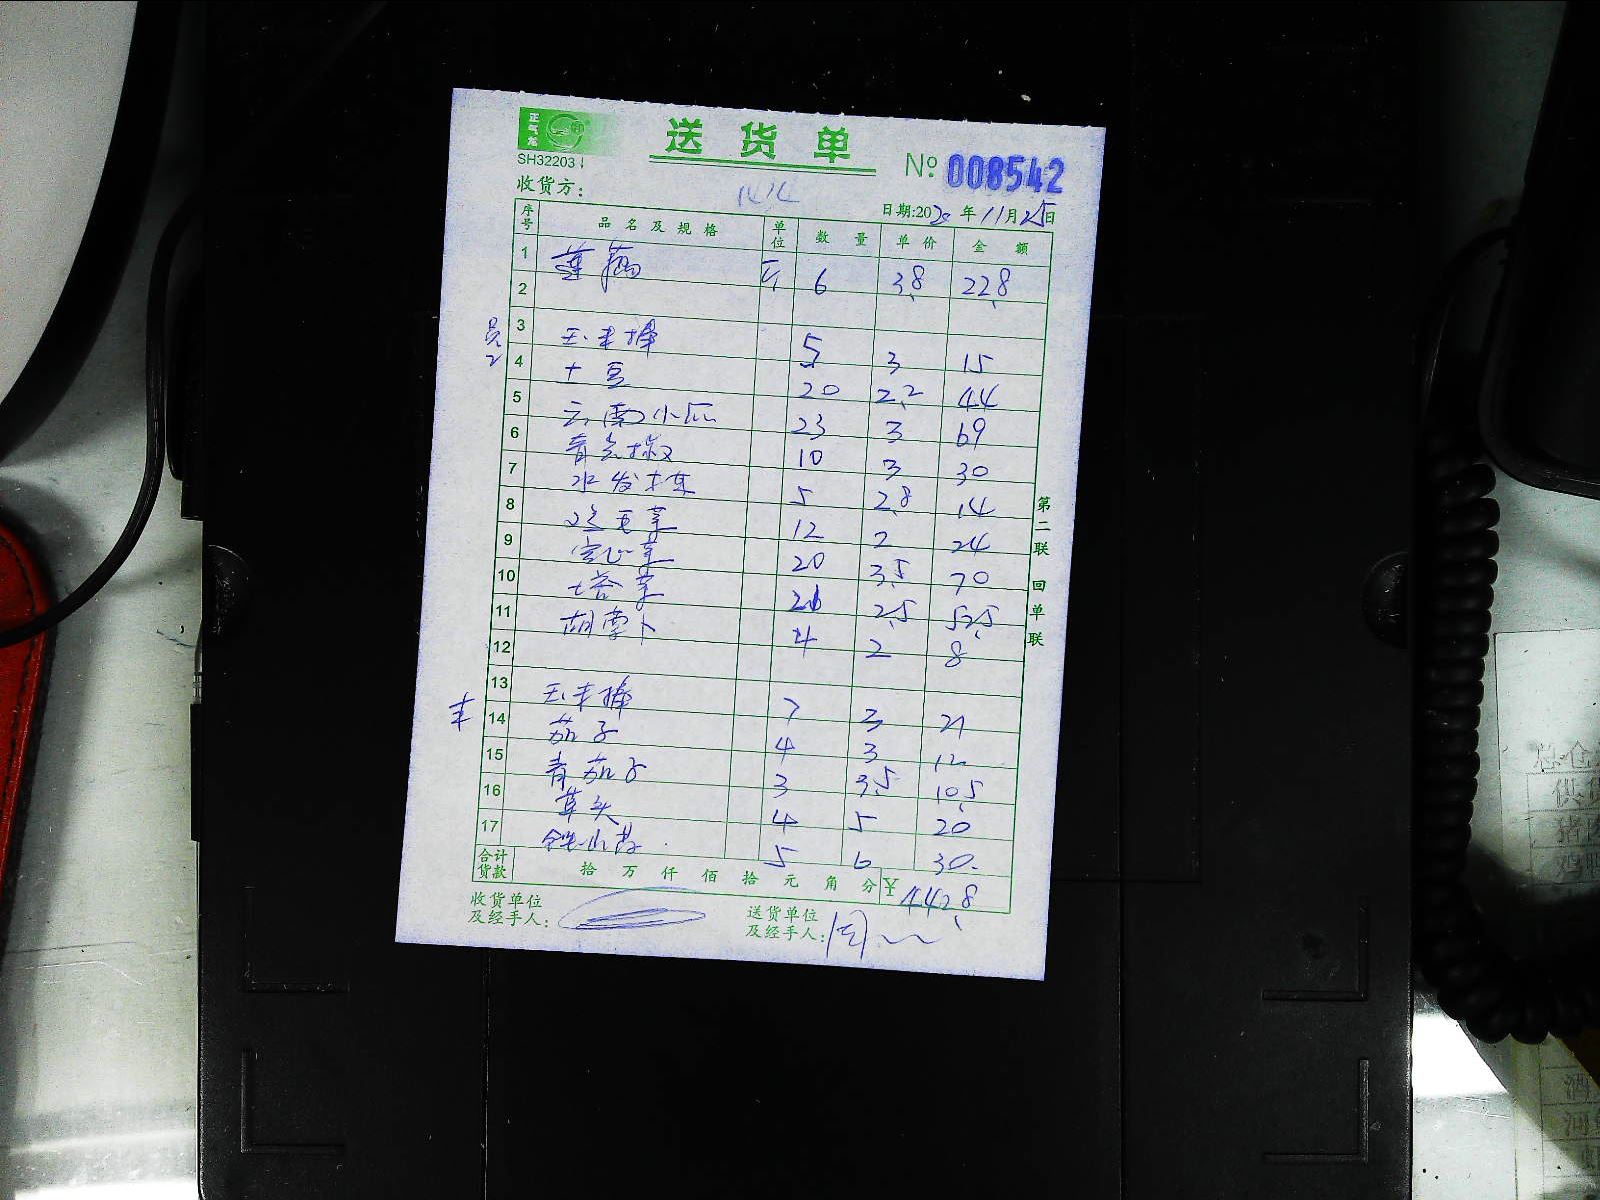 正气龙
送货单
SH32203
No. 008542
收货方：
日期:2020年11月25日
序号 品名及规格 单位 数量 单价 金额
1 莲藕 斤 6 3.8 22.8
2
3 玉米棒 5 3 15
4 土豆 20 2.2 44
5 云南小瓜 23 3 69
6 青尖椒 10 3 30
7 水发 5 2.8 14
8 菜 12 2 24
9 空心菜 20 3.5 70
10 塔菜 21 2.5 52.5
11 胡萝卜 4 2 8
12
13 玉米棒 7 3 21
14 茄子 4 3 12
15 青茄子 3 3.5 10.5
16 草头 4 5 20
17 铁山药 5 6 30.
合计货款 拾万仟佰拾元角分 ¥442.8
收货单位及经手人：
送货单位及经手人：周
第二联 回单联
供
猪
鸡
酒
河